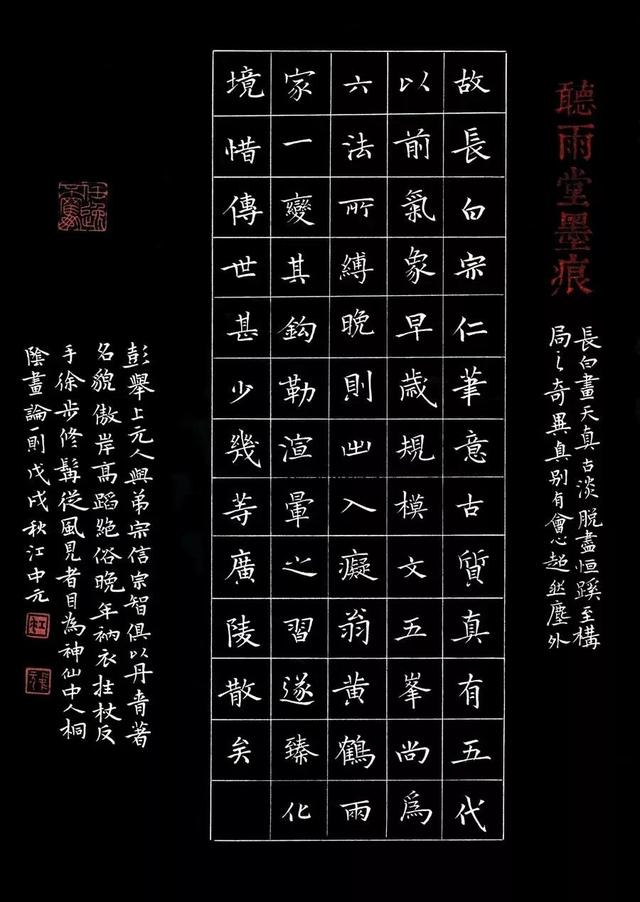 聽雨堂墨痕
長白畫天真古淡脫盡恒蹊至構
局之奇異真別有會心超然塵外
故長白宗仁筆意古質真有五代
以前氣象早歲規模文五峯尚爲
六法所縛晚則出入癡翁黃鶴兩
家一變其鈎勒渲暈之習遂臻化
境惜傳世甚少幾等廣陵散矣
彭舉上元人與弟宗信宗智俱以丹青著
名貌傲岸高蹈絕俗晚年衲衣拄杖反
手徐步修髯從風見者目為神仙中人桐
陰畫論一則戊戌秋江中元
江